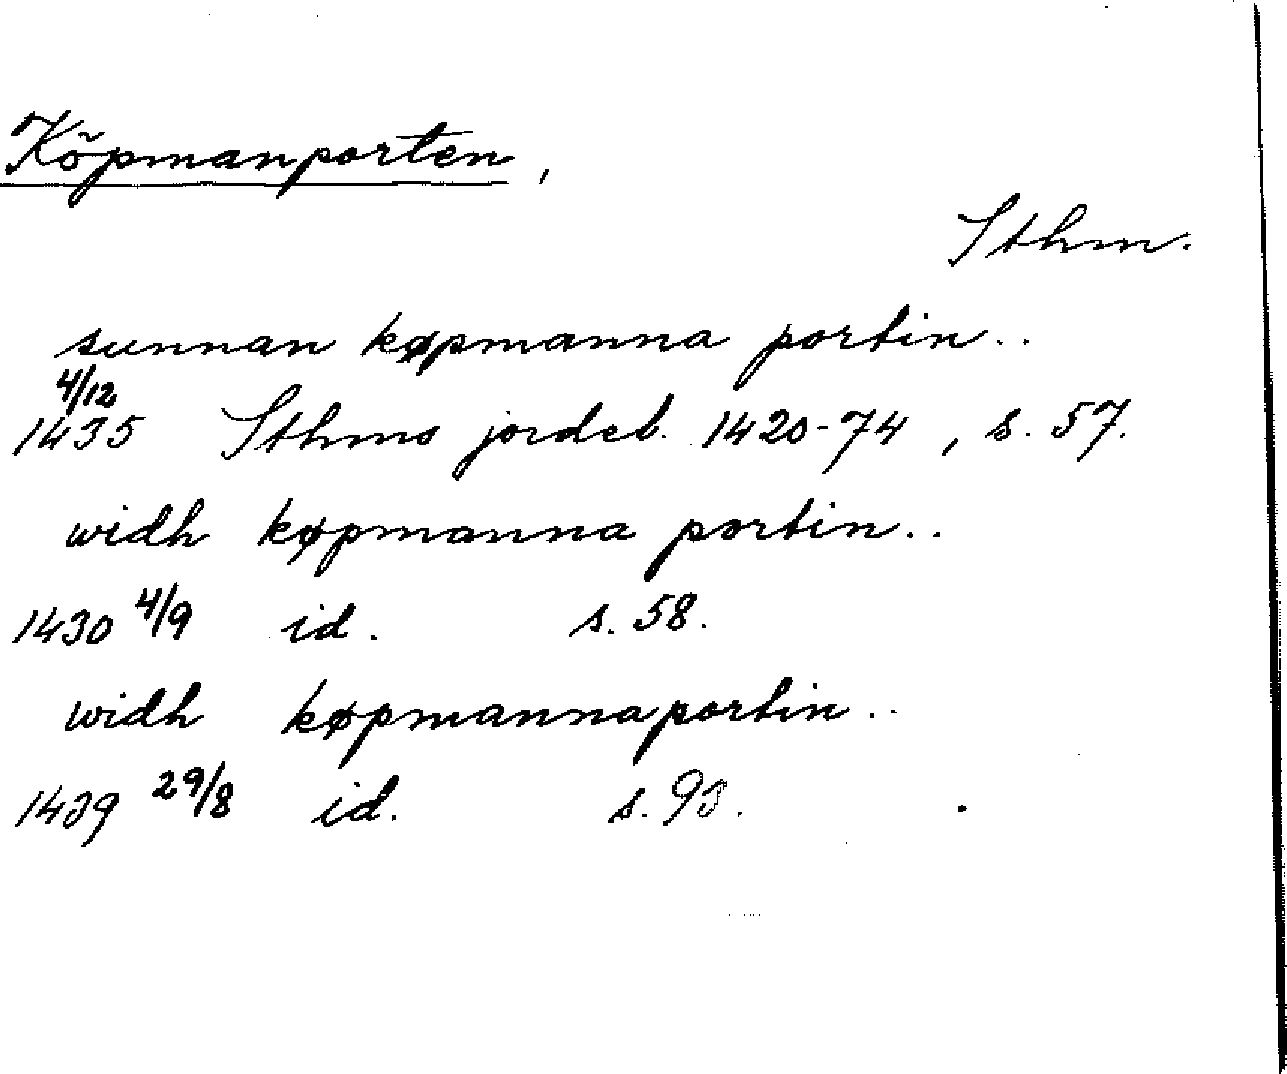 Köpmanporten,
Sthm.
sunnan køpmanna portin..
4/12
1435 Sthms jordeb. 1420-74, s. 57.
widh køpmanna portin..
1430 4/9 id. s. 58.
widh køpmannaportin..
1439 29/8 id. s. 93.